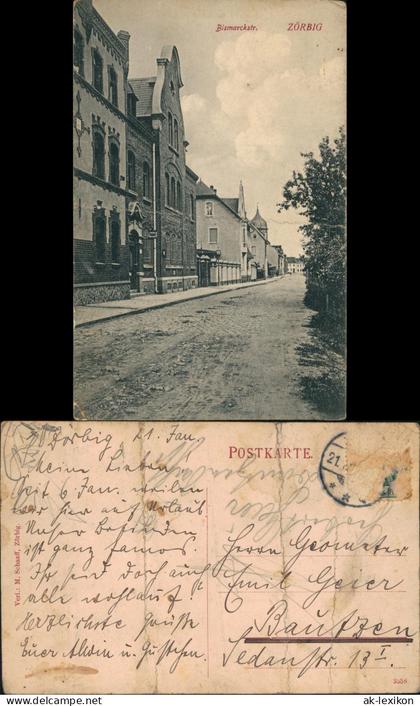 Bismarckstr. ZÖRBIG
Zörbig, 21. Jan.
Meine Lieben!
Seit 6. Jan. weilen
wir hier auf Urlaub
Unser Befinden
ist ganz famos.
Ihr seid doch auch
alle wohlauf?
Herzlichste Grüße
Euer Alwin u. Gustchen.
Verl.: M. Schaaff, Zörbig.
POSTKARTE.
21.
Herrn Geometer
Emil Geier
Bautzen
Sedanstr. 13 I.
ak-lexikon.com